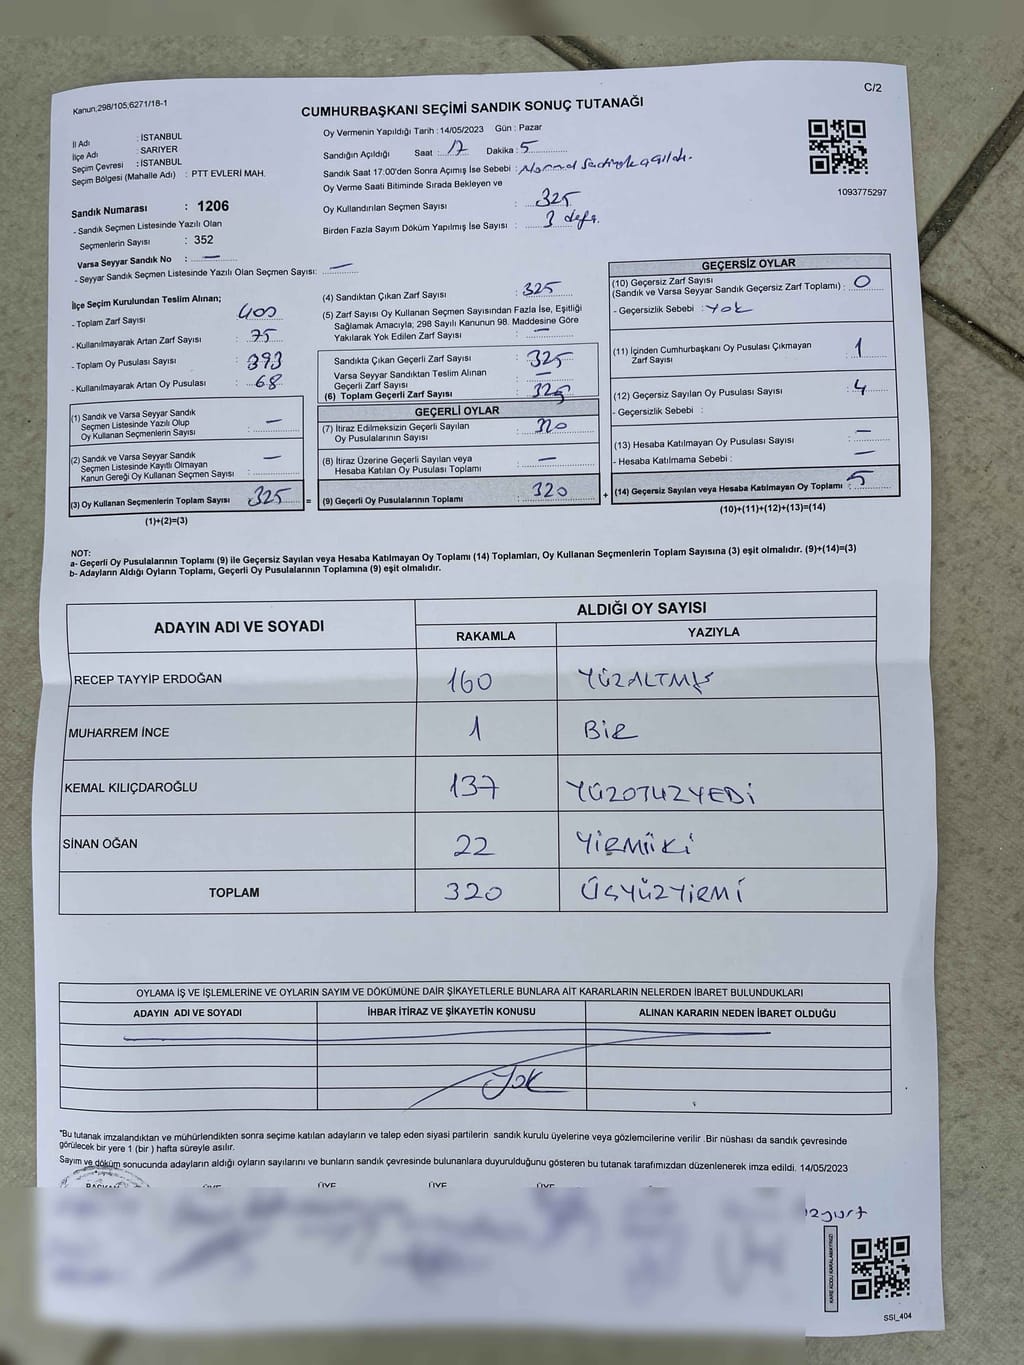 Kanun;298/105;6271/18-1
C/2
CUMHURBAŞKANI SEÇİMİ SANDIK SONUÇ TUTANAĞI
İl Adı : İSTANBUL
İlçe Adı : SARIYER
Seçim Çevresi : İSTANBUL
Seçim Bölgesi (Mahalle Adı) : PTT EVLERİ MAH.
Sandık Numarası : 1206
- Sandık Seçmen Listesinde Yazılı Olan
Seçmenlerin Sayısı : 352
Varsa Seyyar Sandık No : —
- Seyyar Sandık Seçmen Listesinde Yazılı Olan Seçmen Sayısı: —
Oy Vermenin Yapıldığı Tarih : 14/05/2023 Gün : Pazar
Sandığın Açıldığı Saat : 17 Dakika : 5
Sandık Saat 17:00'den Sonra Açımış İse Sebebi : Normal Saatinde açıldı.
Oy Verme Saati Bitiminde Sırada Bekleyen ve
Oy Kullandırılan Seçmen Sayısı : 325
Birden Fazla Sayım Döküm Yapılmış İse Sayısı : 3 defa.
1093775297
İlçe Seçim Kurulundan Teslim Alınan;
- Toplam Zarf Sayısı : 400
- Kullanılmayarak Artan Zarf Sayısı : 75
- Toplam Oy Pusulası Sayısı : 393
- Kullanılmayarak Artan Oy Pusulası : 68
(1) Sandık ve Varsa Seyyar Sandık
Seçmen Listesinde Yazılı Olup
Oy Kullanan Seçmenlerin Sayısı : —
(2) Sandık ve Varsa Seyyar Sandık
Seçmen Listesinde Kayıtlı Olmayan
Kanun Gereği Oy Kullanan Seçmen Sayısı : —
(3) Oy Kullanan Seçmenlerin Toplam Sayısı : 325 =
(1)+(2)=(3)
(4) Sandıktan Çıkan Zarf Sayısı : 325
(5) Zarf Sayısı Oy Kullanan Seçmen Sayısından Fazla İse, Eşitliği
Sağlamak Amacıyla; 298 Sayılı Kanunun 98. Maddesine Göre
Yakılarak Yok Edilen Zarf Sayısı : —
Sandıkta Çıkan Geçerli Zarf Sayısı : 325
Varsa Seyyar Sandıktan Teslim Alınan
Geçerli Zarf Sayısı : —
(6) Toplam Geçerli Zarf Sayısı : 325
GEÇERLİ OYLAR
(7) İtiraz Edilmeksizin Geçerli Sayılan
Oy Pusulalarının Sayısı : 320
(8) İtiraz Üzerine Geçerli Sayılan veya
Hesaba Katılan Oy Pusulası Toplamı : —
(9) Geçerli Oy Pusulalarının Toplamı : 320 +
GEÇERSİZ OYLAR
(10) Geçersiz Zarf Sayısı
(Sandık ve Varsa Seyyar Sandık Geçersiz Zarf Toplamı) : 0
- Geçersizlik Sebebi : Yok
(11) İçinden Cumhurbaşkanı Oy Pusulası Çıkmayan
Zarf Sayısı : 1
(12) Geçersiz Sayılan Oy Pusulası Sayısı : 4
- Geçersizlik Sebebi :
(13) Hesaba Katılmayan Oy Pusulası Sayısı : —
- Hesaba Katılmama Sebebi : —
(14) Geçersiz Sayılan veya Hesaba Katılmayan Oy Toplamı : 5
(10)+(11)+(12)+(13)=(14)
NOT:
a- Geçerli Oy Pusulalarının Toplamı (9) ile Geçersiz Sayılan veya Hesaba Katılmayan Oy Toplamı (14) Toplamları, Oy Kullanan Seçmenlerin Toplam Sayısına (3) eşit olmalıdır. (9)+(14)=(3)
b- Adayların Aldığı Oyların Toplamı, Geçerli Oy Pusulalarının Toplamına (9) eşit olmalıdır.
ADAYIN ADI VE SOYADI
ALDIĞI OY SAYISI
RAKAMLA YAZIYLA
RECEP TAYYİP ERDOĞAN 160 YÜZALTMIŞ
MUHARREM İNCE 1 BİR
KEMAL KILIÇDAROĞLU 137 YÜZOTUZYEDİ
SİNAN OĞAN 22 YİRMİİKİ
TOPLAM 320 ÜÇYÜZYİRMİ
OYLAMA İŞ VE İŞLEMLERİNE VE OYLARIN SAYIM VE DÖKÜMÜNE DAİR ŞİKAYETLERLE BUNLARA AİT KARARLARIN NELERDEN İBARET BULUNDUKLARI
ADAYIN ADI VE SOYADI İHBAR İTİRAZ VE ŞİKAYETİN KONUSU ALINAN KARARIN NEDEN İBARET OLDUĞU
Yok
"Bu tutanak imzalandıktan ve mühürlendikten sonra seçime katılan adayların ve talep eden siyasi partilerin sandık kurulu üyelerine veya gözlemcilerine verilir .Bir nüshası da sandık çevresinde
görülecek bir yere 1 (bir ) hafta süreyle asılır.
Sayım ve döküm sonucunda adayların aldığı oyların sayılarını ve bunların sandık çevresinde bulunanlara duyurulduğunu gösteren bu tutanak tarafımızdan düzenlenerek imza edildi. 14/05/2023
BAŞKAN ÜYE ÜYE ÜYE ÜYE
SSI_404